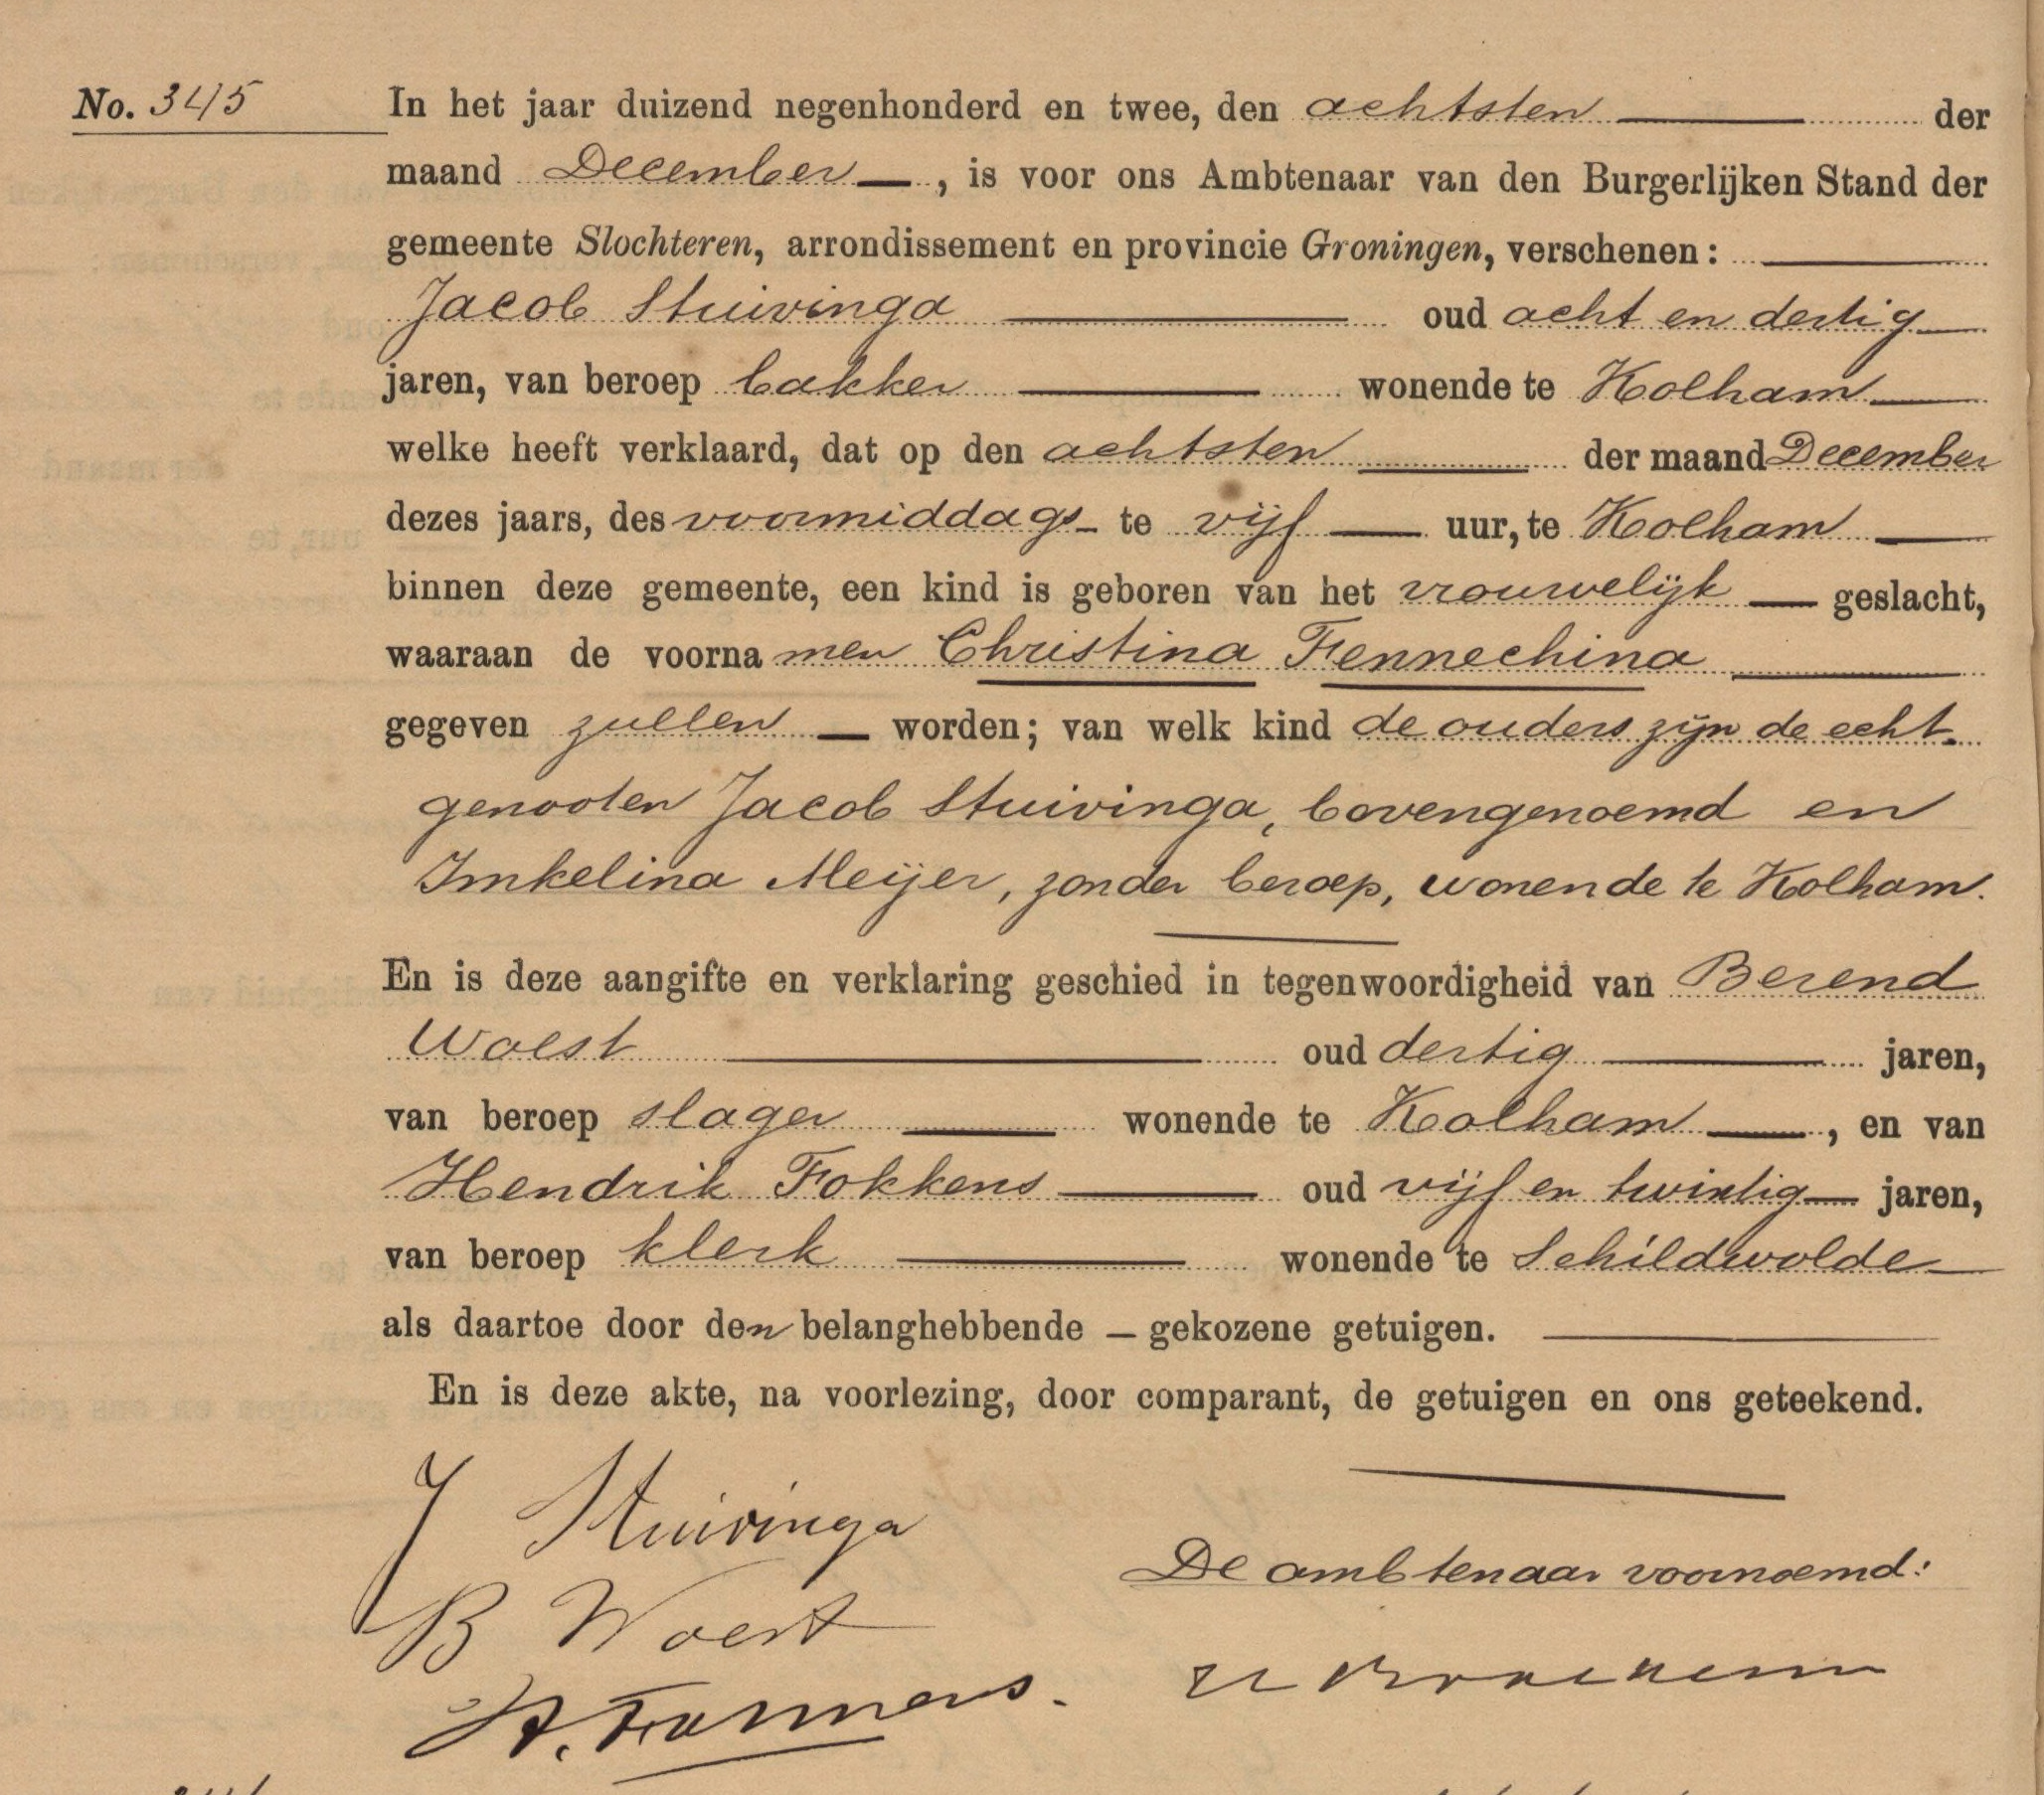 No. 345
In het jaar duizend negenhonderd en twee, den achtsten der
maand December, is voor ons Ambtenaar van den Burgerlijken Stand der
gemeente Slochteren, arrondissement en provincie Groningen, verschenen:
Jacob Stuivinga oud acht en dertig
jaren, van beroep bakker wonende te Kolham
welke heeft verklaard, dat op den achtsten der maand December
dezes jaars, des voormiddags te vijf uur, te Kolham
binnen deze gemeente, een kind is geboren van het vrouwelijk geslacht,
waaraan de voornamen Christina Fennechina
gegeven zullen worden; van welk kind de ouders zijn de echt-
genooten Jacob Stuivinga, bovengenoemd en
Imkelina Meijer, zonder beroep, wonende te Kolham.
En is deze aangifte en verklaring geschied in tegenwoordigheid van Berend
Woest oud dertig jaren,
van beroep slager wonende te Kolham, en van
Hendrik Fokkens oud vijf en twintig jaren,
van beroep klerk wonende te Schildwolde
als daartoe door den belanghebbende – gekozene getuigen.
En is deze akte, na voorlezing, door comparant, de getuigen en ons geteekend.
J Stuivinga
De ambtenaar voornoemd:
B Woest
H. Fokkens.